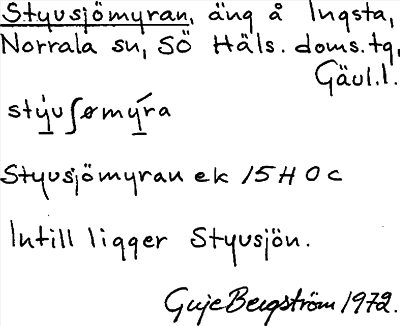 Styvsjömyran, äng å Ingsta,
Norrala sn, SÖ Häls. doms.tg,
Gävl.l.
stývʃømýra
Styvsjömyran ek 15 H 0 c
Intill ligger Styvsjön.
Guje Bergström 1972.